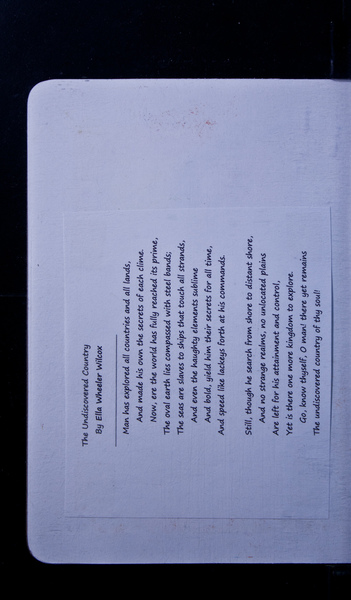 The Undiscovered Country
By Ella Wheeler Wilcox
Man has explored all countries and all lands,
And made his own the secrets of each clime.
Now, ere the world has fully reached its prime,
The oval earth lies compassed with steel bands;
The seas are slaves to ships that touch all strands,
And even the haughty elements sublime
And bold, yield him their secrets for all time,
And speed like lackeys forth at his commands.
Still, though he search from shore to distant shore,
And no strange realms, no unlocated plains
Are left for his attainment and control,
Yet is there one more kingdom to explore.
Go, know thyself, O man! there yet remains
The undiscovered country of thy soul!